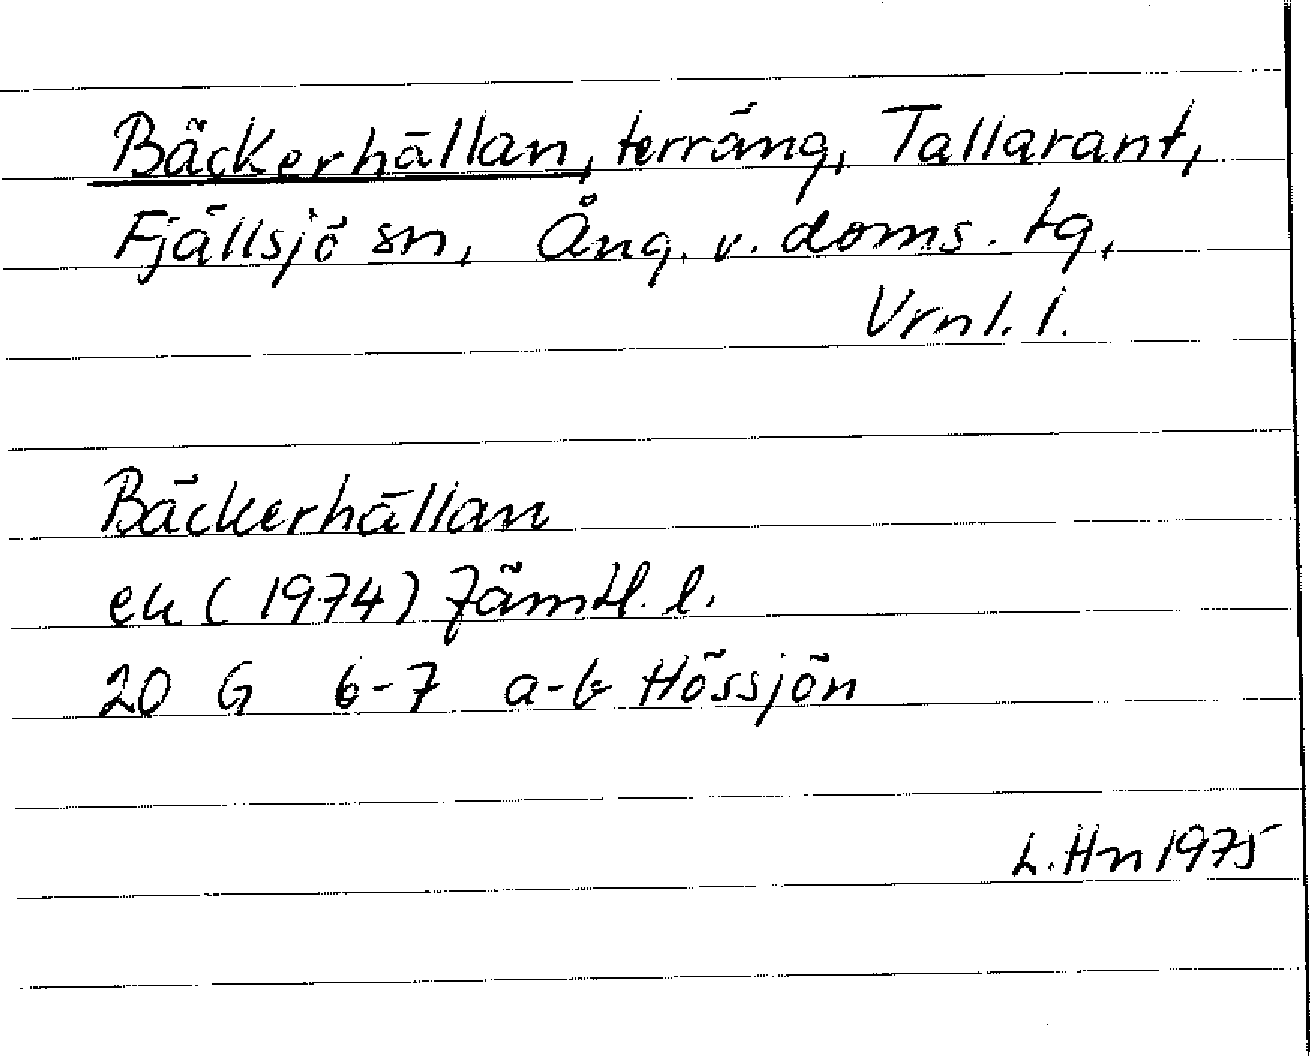 Bäckerhällan, terräng, Tallarant,
Fjällsjö sn, Ång. v. doms. tg,
Vrnl. l.
Bäckerhällan
ek (1974) Jämtl. l.
20 G 6-7 a-b Hössjön
L. Hn 1975